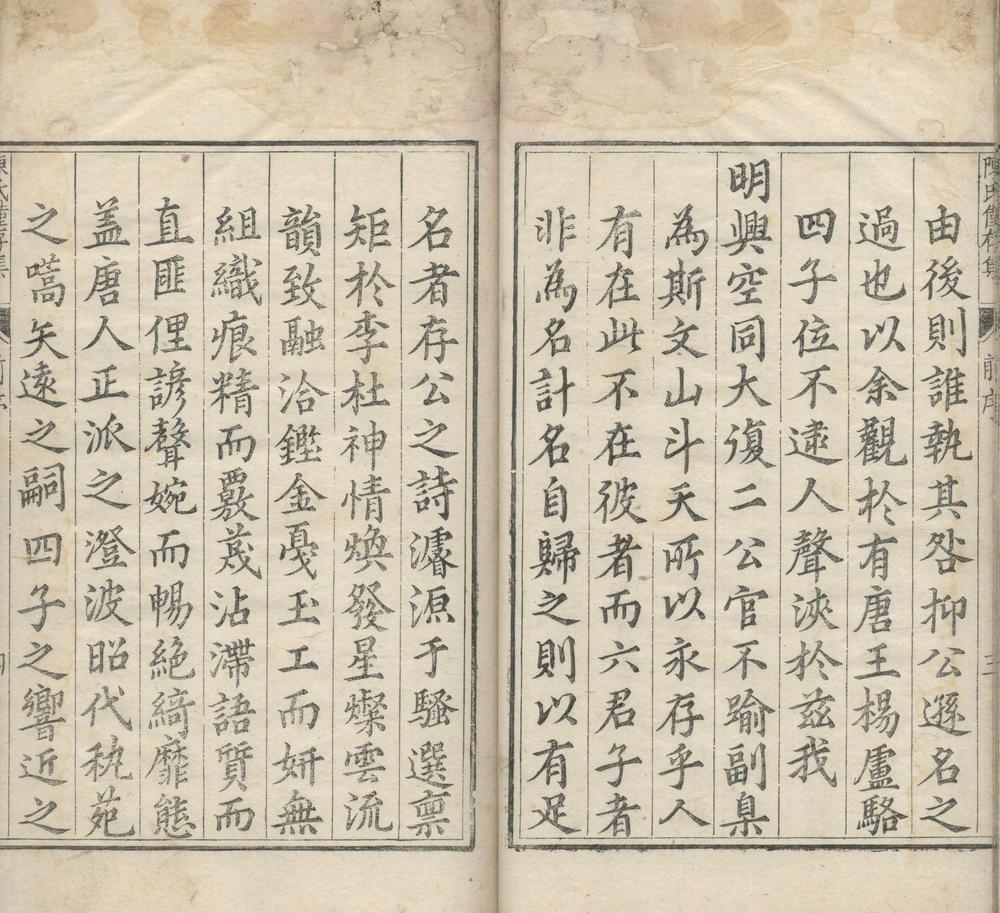 由後則誰執其咎抑公遜名之
過也以余觀於有唐王楊盧駱
四子位不逮人聲浹於茲我
明興空同大復二公官不踰副臬
為斯文山斗天所以永存乎人
有在此不在彼者而六君子者
非為名計名自歸之則以有足
前序
三
名者存公之詩濬源于騷選禀
矩於李杜神情煥發星燦雲流
韻致融洽鏗金戛玉工而妍無
組織痕精而覈蔑沾滯語質而
直匪俚諺聲婉而暢絕綺靡態
盖唐人正派之澄波昭代秇苑
之嚆矢遠之嗣四子之響近之